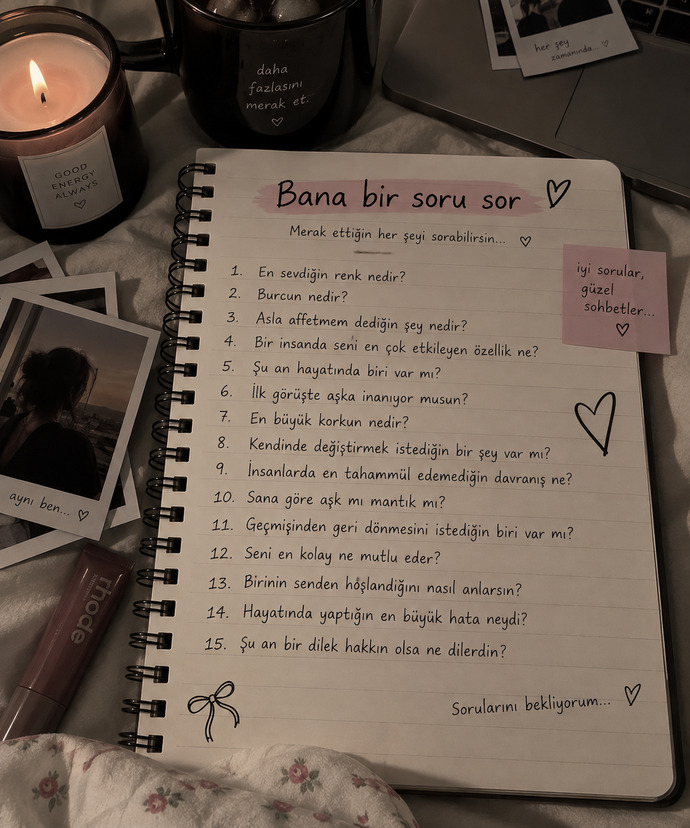 her şey
zamanında.. ♡
daha
fazlasını
merak et.
♡
GOOD
ENERGY
ALWAYS
♡
Bana bir soru sor ♡
Merak ettiğin her şeyi sorabilirsin... ♡
iyi sorular,
güzel
sohbetler...
♡
1. En sevdiğin renk nedir?
2. Burcun nedir?
3. Asla affetmem dediğin şey nedir?
4. Bir insanda seni en çok etkileyen özellik ne?
5. Şu an hayatında biri var mı?
6. İlk görüşte aşka inanıyor musun?
7. En büyük korkun nedir?
8. Kendinde değiştirmek istediğin bir şey var mı?
9. İnsanlarda en tahammül edemediğin davranış ne?
10. Sana göre aşk mı mantık mı?
11. Geçmişinden geri dönmesini istediğin biri var mı?
12. Seni en kolay ne mutlu eder?
13. Birinin senden hoşlandığını nasıl anlarsın?
14. Hayatında yaptığın en büyük hata neydi?
15. Şu an bir dilek hakkın olsa ne dilerdin?
Sorularını bekliyorum... ♡
aynı ben... ♡
rhode